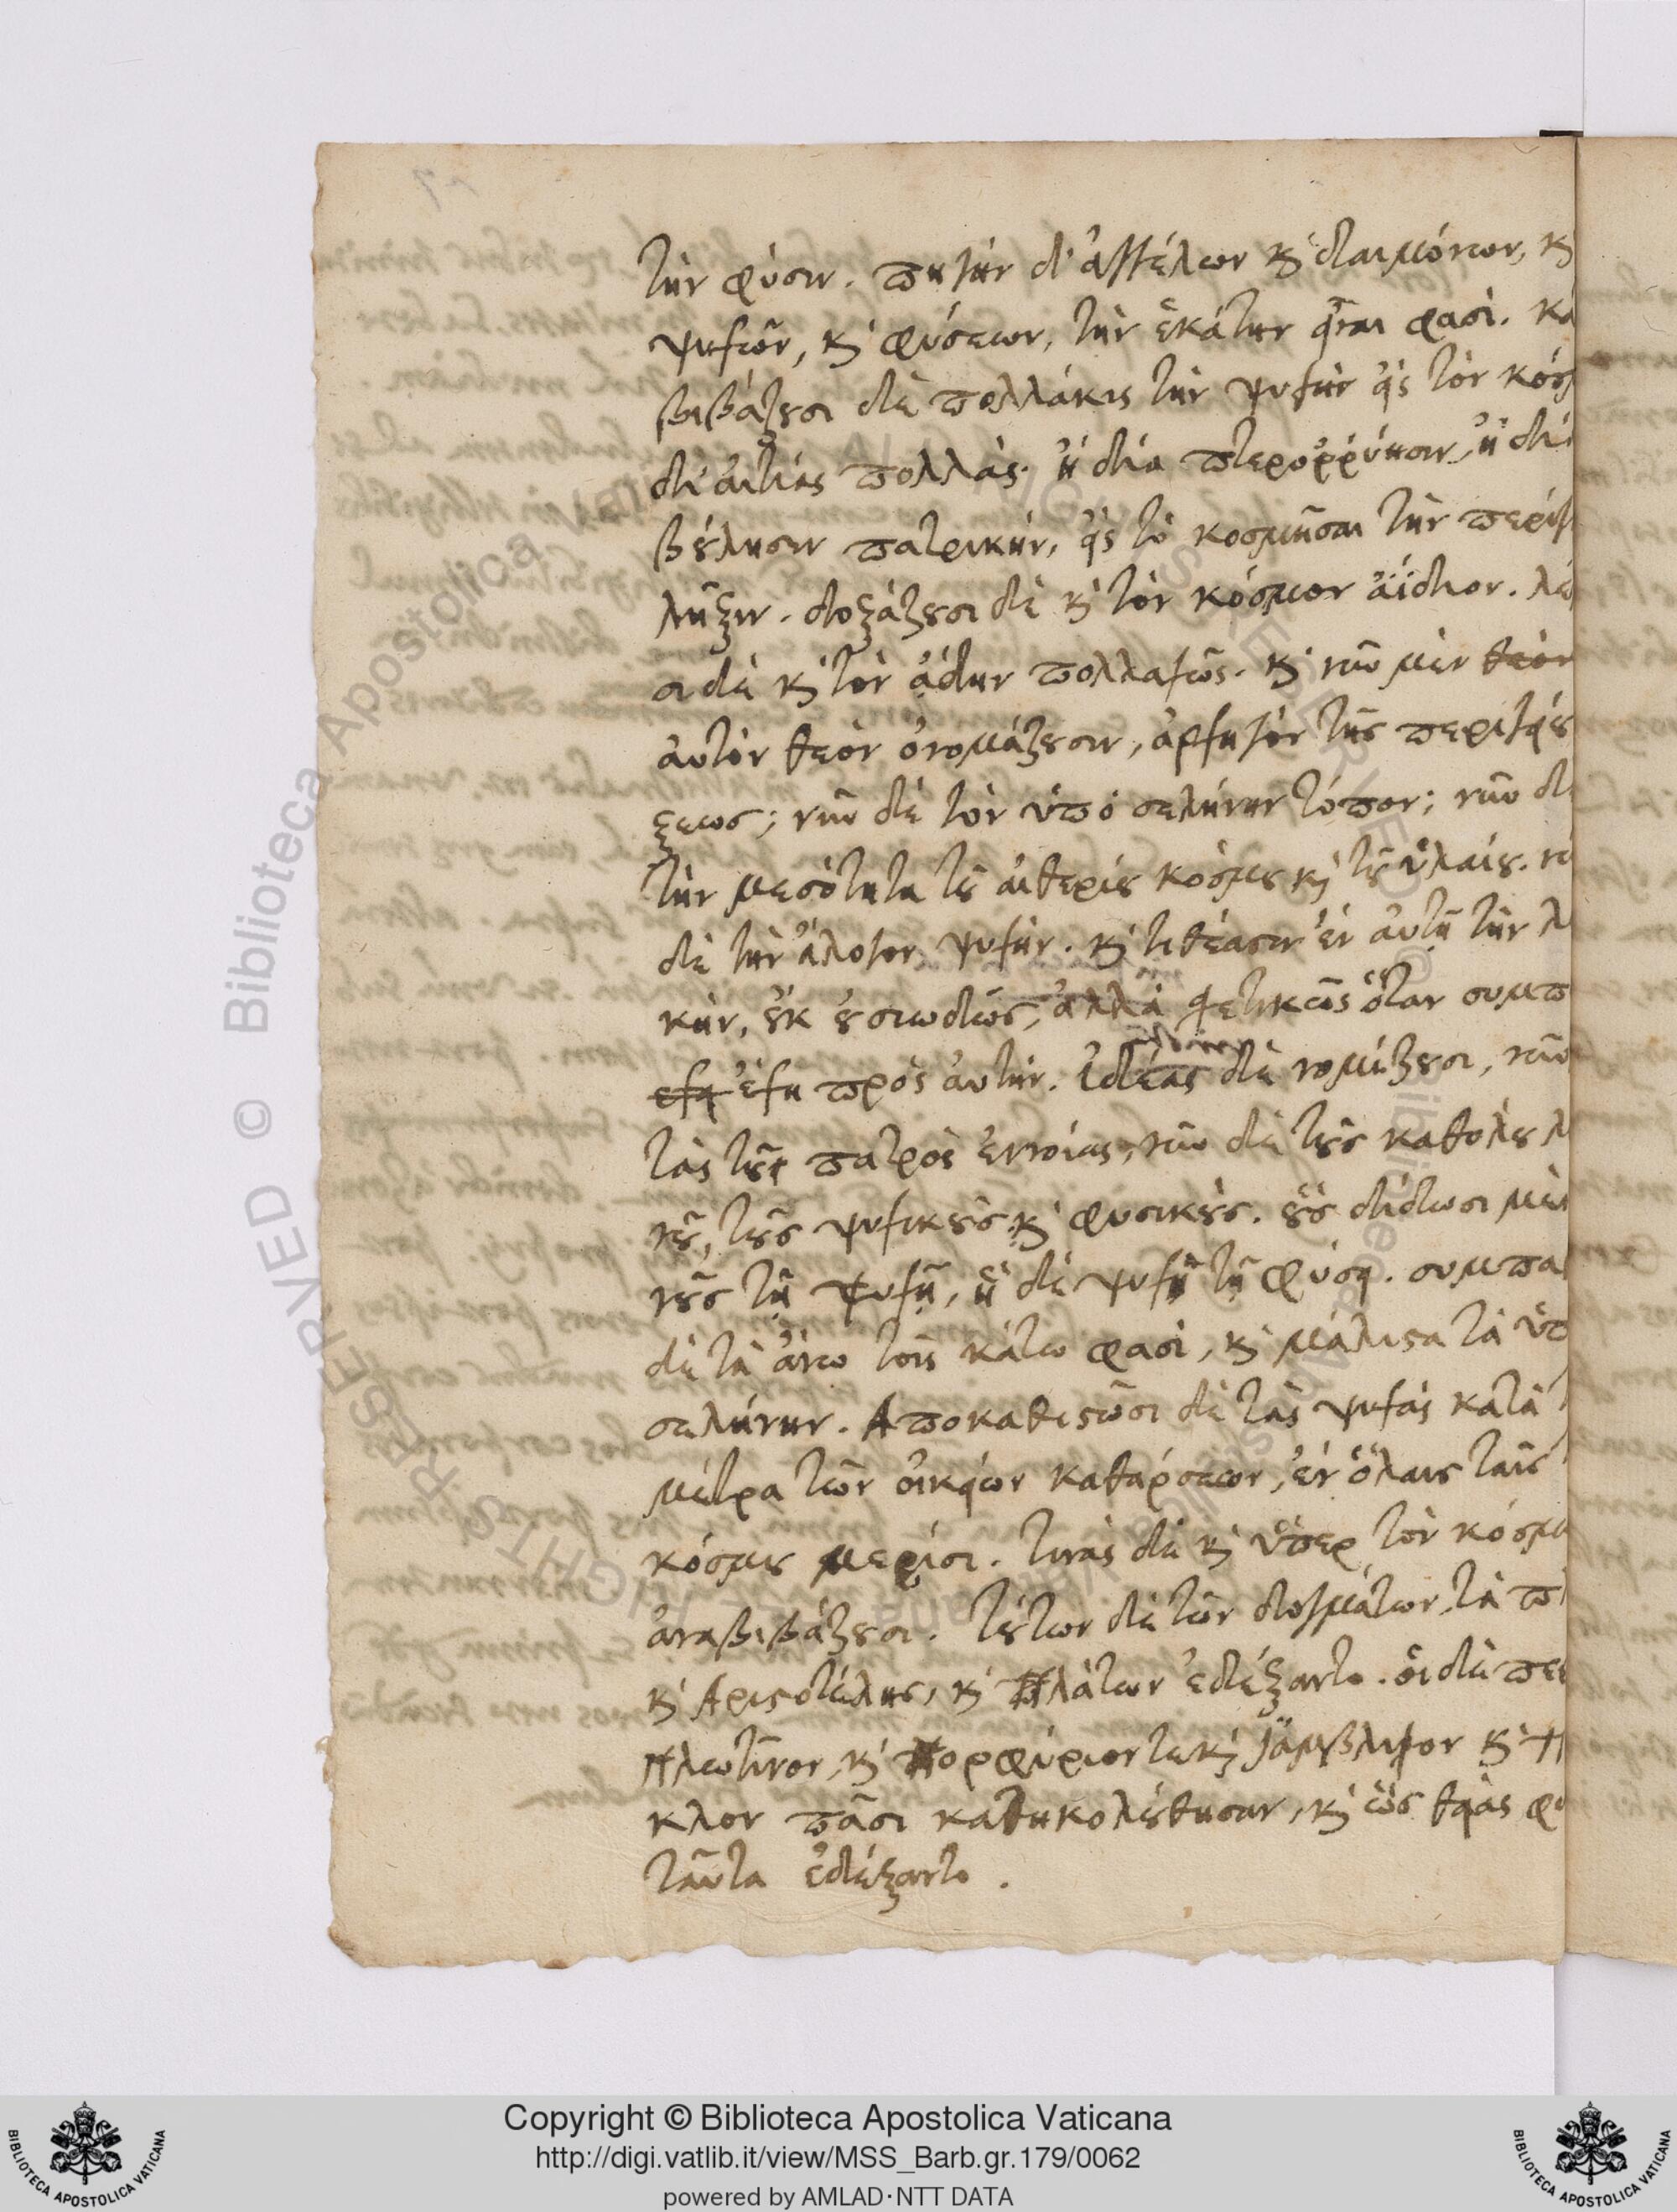 τὴν φύσιν. πηγὴν δ' ἀγγέλων κ̀ δαιμόνων, κ̀
ψυχῶν, κ̀ φύσεων, τὴν ἑκάτην εἶναι φασὶ. κα
βιβάζουσι δὲ πολλάκις τὴν ψυχὴν εἰς τὸν κόσ
δι' αἰτίας πολλὰς· ἢ διὰ πτεροῤῥύησιν, ἢ διὰ
βούλησιν πατρικὴν, εἰς τὸ κοσμῆσαι τὴν περίγ
λῆξιν. δοξάζουσι δὲ κ̀ τὸν κόσμον ἀΐδιον. λέ
σι δὲ κ̀ τὸν ᾅδην πολλαχῶς. κ̀ νῦν μὲν θεὸν
αὐτὸν θεὸν ὀνομάζουσιν, ἀρχηγὸν τῆς περιγείου
ξεως; νῦν δὲ τὸν ὑπὸ σελήνην τόπον; νῦν δὲ
τὴν μεσότητα τοῦ αἰθερίου κόσμου κ̀ τοῦ ὑλαίου. νῦ
δὲ τὴν ἄλογον ψυχήν. κ̀ τιθέασιν ἐν αὐτῇ τὴν λ
κὴν, οὐκ οὐσιωδῶς, ἀλλὰ σχετικῶς ὅταν συμπ
εχει ἔχη πρὸς αὐτήν. ἰδέας δὲ νομίζουσι, νῦν
τὰς τοῦ πατρὸς ἐννοίας, νῦν δὲ τοὺς καθόλου λ
νοῦ, τοὺς ψυχικοὺς κ̀ φυσικοὺς. οὓς δίδωσι μὲν
νοῦς τῇ ψυχῇ, ἡ δὲ ψυχὴ τῇ φύσει. συμπα
δὲ τὰ ἄνω τοῖς κάτω φασὶ, κ̀ μάλιστα τὰ ὑπ
σελήνην. Ἀποκαθιστῶσι δὲ τὰς ψυχὰς κατὰ
μέτρα τῶν οἰκείων καθάρσεων, ἐν ὅλαις ταῖς
κόσμου μερίσι. τινὰς δὲ κ̀ ὑπὲρ τὸν κόσμο
ἀναβιβάζουσι. τούτων δὲ τῶν δογμάτων, τὰ π
κ̀ Ἀριστοτέλης, κ̀ Πλάτων ἐδέξαντο. οἱ δὲ πε
Πλωτῖνον, κ̀ Πορφύριον τε κ̀ Ἰάμβλιχον κ̀ Π
κλον πᾶσι κατηκολούθησαν, κ̀ ὡς θείας φω
ταῦτα ἐδέξαντο.
© Biblioteca Apostolica Vaticana
Copyright © Biblioteca Apostolica Vaticana
http://digi.vatlib.it/view/MSS_Barb.gr.179/0062
powered by AMLAD·NTT DATA
BIBLIOTECA APOSTOLICA VATICANA
BIBLIOTECA APOSTOLICA VATICANA